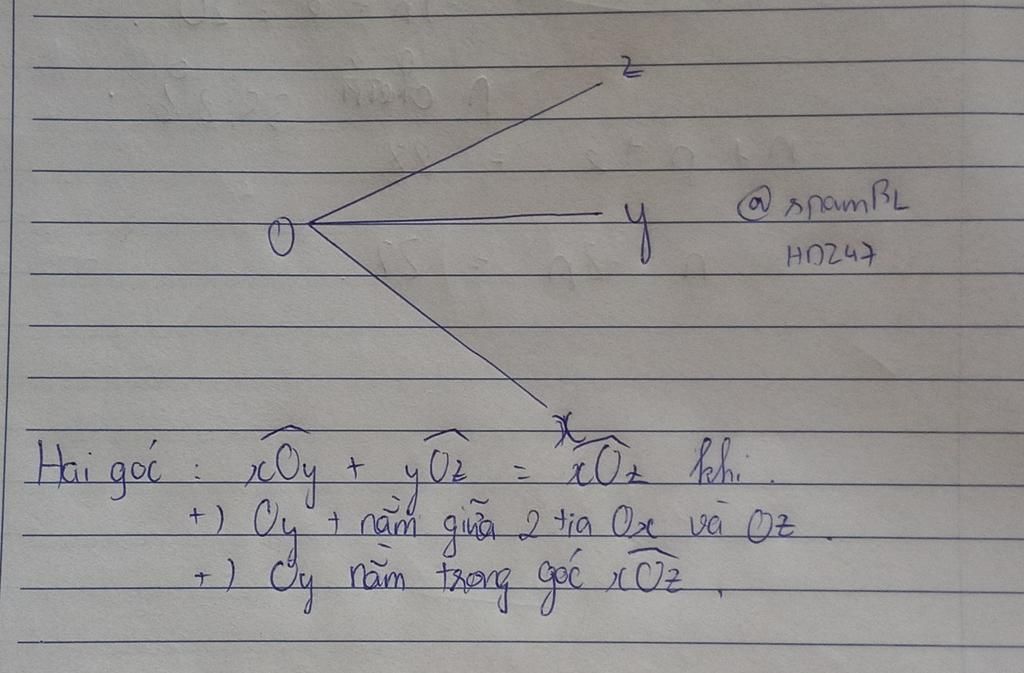 z
O
y @spamBL
HD247
x
Hai góc : xOy + yOz = xOz khi.
+) Oy + nằm giữa 2 tia Ox và Oz.
+) Oy nằm trong góc xOz.